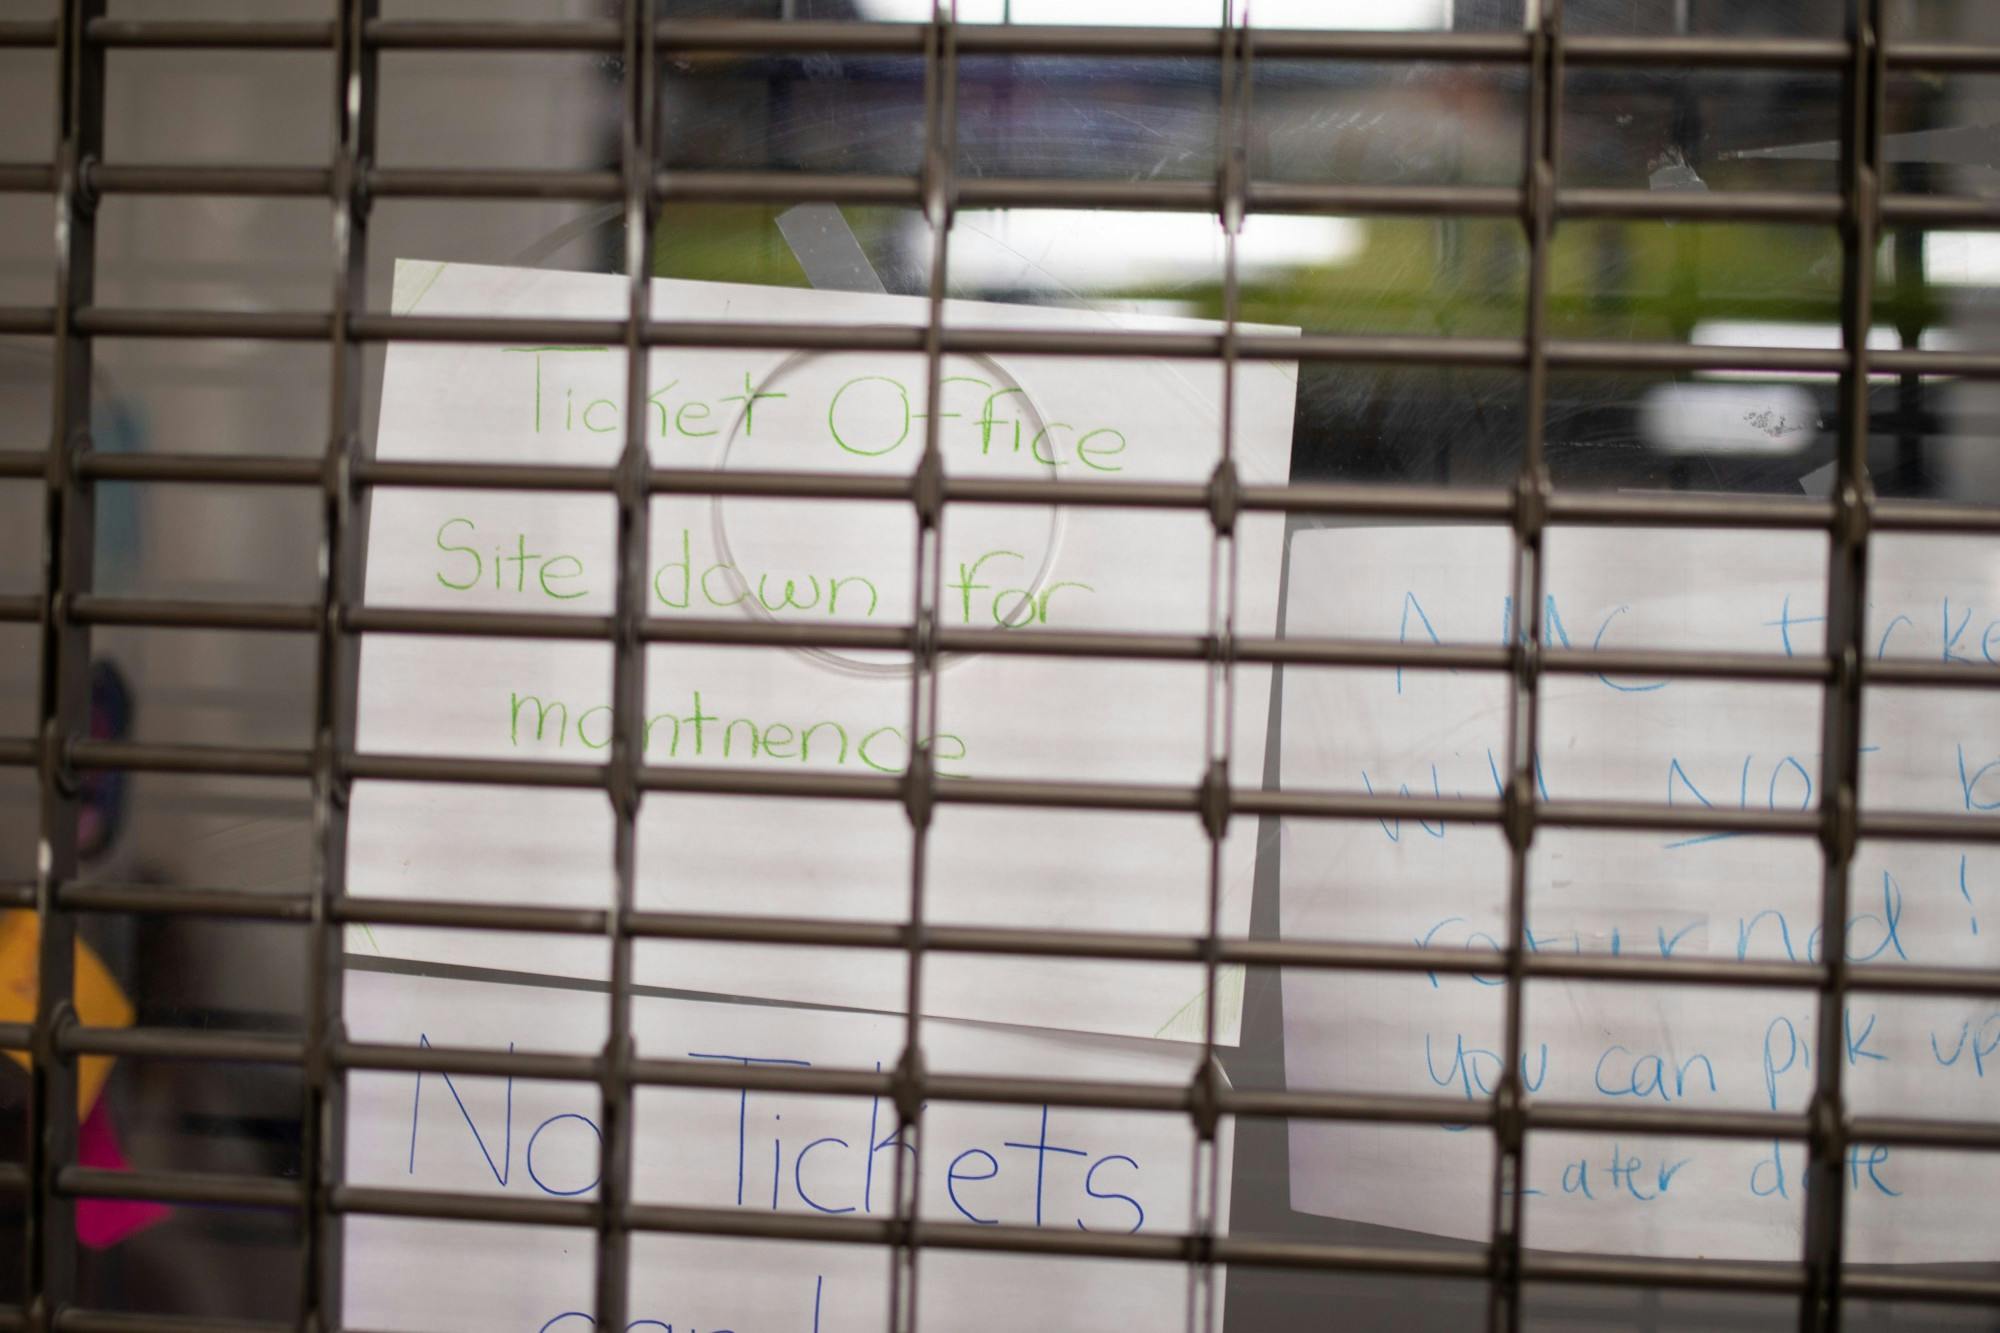 Ticket Office
Site down for
mantnence
No Tickets
can
AMC
will NOT
returned!
you can pick up
Later date